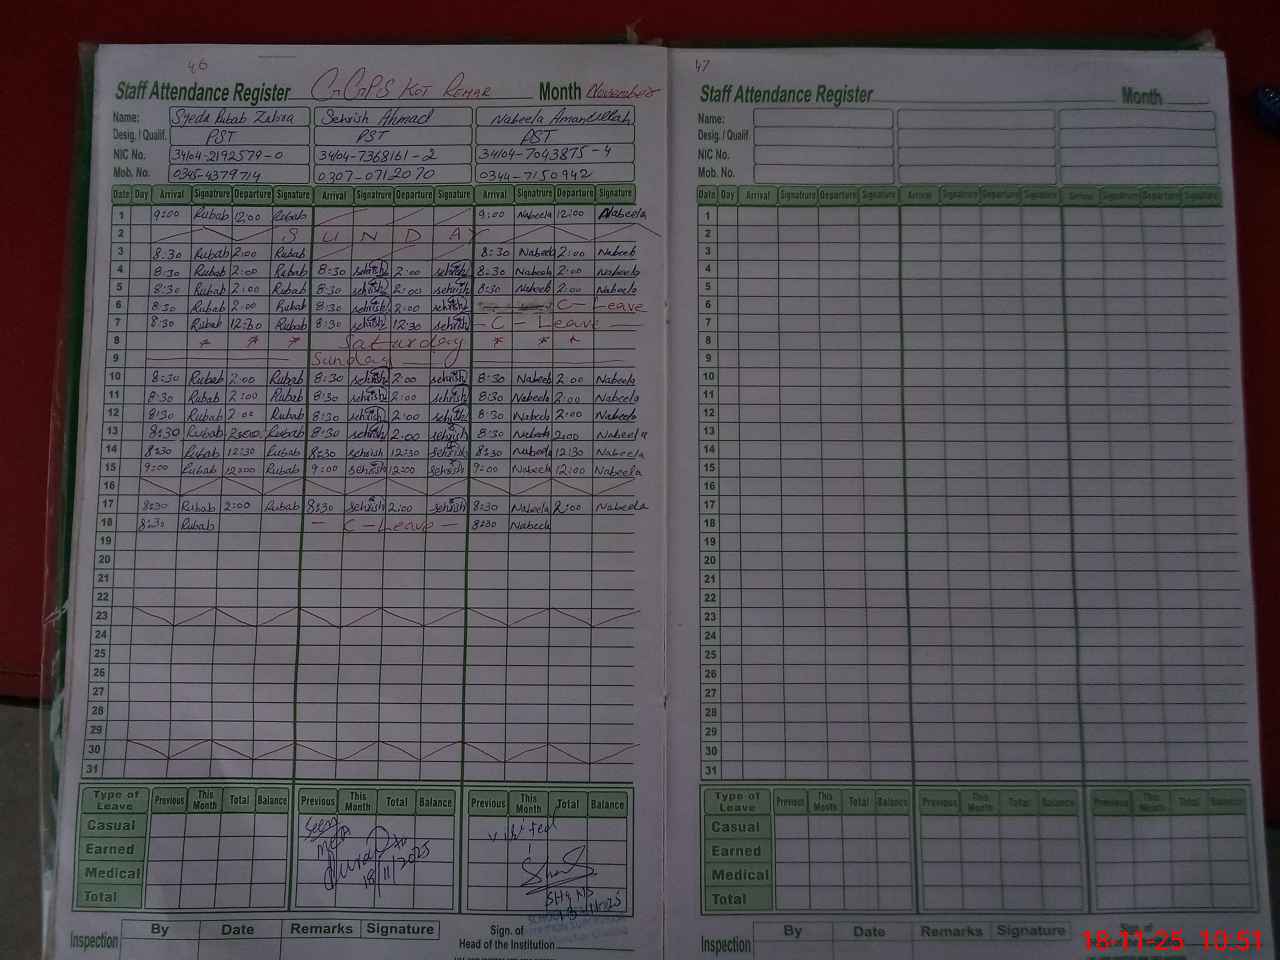 46
Staff Attendance Register GGPS Kot Remar Month November
Name: Syeda Rubab Zahra Sehrish Ahmad Nabeela Amanullah
Desig. / Qualif. PST PST PST
NIC No. 34104-2192579-0 34104-7368161-2 34104-7043875-4
Mob. No. 0345-4379714 0307-0712070 0344-7150942
Date Day Arrival Signatrure Departure Signature Arrival Signatrure Departure Signature Arrival Signatrure Departure Signature
1 9:00 Rubab 12:00 Rubab 9:00 Nabeela 12:00 Nabeela
2 S U N D A Y
3 8:30 Rubab 2:00 Rubab 8:30 Nabeela 2:00 Nabeela
4 8:30 Rubab 2:00 Rubab 8:30 sehrish 2:00 sehrish 8:30 Nabeela 2:00 Nabeela
5 8:30 Rubab 2:00 Rubab 8:30 sehrish 2:00 sehrish 8:30 Nabeela 2:00 Nabeela
6 8:30 Rubab 2:00 Rubab 8:30 sehrish 2:00 sehrish C- Leave
7 8:30 Rubab 12:30 Rubab 8:30 sehrish 12:30 sehrish - C - Leave -
8 * * * Saturday * * *
9 Sunday
10 8:30 Rubab 2:00 Rubab 8:30 sehrish 2:00 sehrish 8:30 Nabeela 2:00 Nabeela
11 8:30 Rubab 2:00 Rubab 8:30 sehrish 2:00 sehrish 8:30 Nabeela 2:00 Nabeela
12 8:30 Rubab 2:00 Rubab 8:30 sehrish 2:00 sehrish 8:30 Nabeela 2:00 Nabeela
13 8:30 Rubab 2:00 Rubab 8:30 sehrish 2:00 sehrish 8:30 Nabeela 2:00 Nabeela
14 8:30 Rubab 12:30 Rubab 8:30 sehrish 12:30 sehrish 8:30 Nabeela 12:30 Nabeela
15 9:00 Rubab 12:00 Rubab 9:00 sehrish 12:00 sehrish 9:00 Nabeela 12:00 Nabeela
16
17 8:30 Rubab 2:00 Rubab 8:30 sehrish 2:00 sehrish 8:30 Nabeela 2:00 Nabeela
18 8:30 Rubab - C - Leave - 8:30 Nabeela
19
20
21
22
23
24
25
26
27
28
29
30
31
Type of Leave Previous This Month Total Balance Previous This Month Total Balance Previous This Month Total Balance
Casual
Earned
Medical
Total
Seen
18/11/2025
visited
Inspection By Date Remarks Signature
Sign. of
Head of the Institution
47
Staff Attendance Register Month
Name:
Desig. / Qualif.
NIC No.
Mob. No.
Date Day Arrival Signatrure Departure Signature Arrival Signatrure Departure Signature Arrival Signatrure Departure Signature
1
2
3
4
5
6
7
8
9
10
11
12
13
14
15
16
17
18
19
20
21
22
23
24
25
26
27
28
29
30
31
Type of Leave Previous This Month Total Balance Previous This Month Total Balance Previous This Month Total Balance
Casual
Earned
Medical
Total
Inspection By Date Remarks Signature
18-11-25 10:51